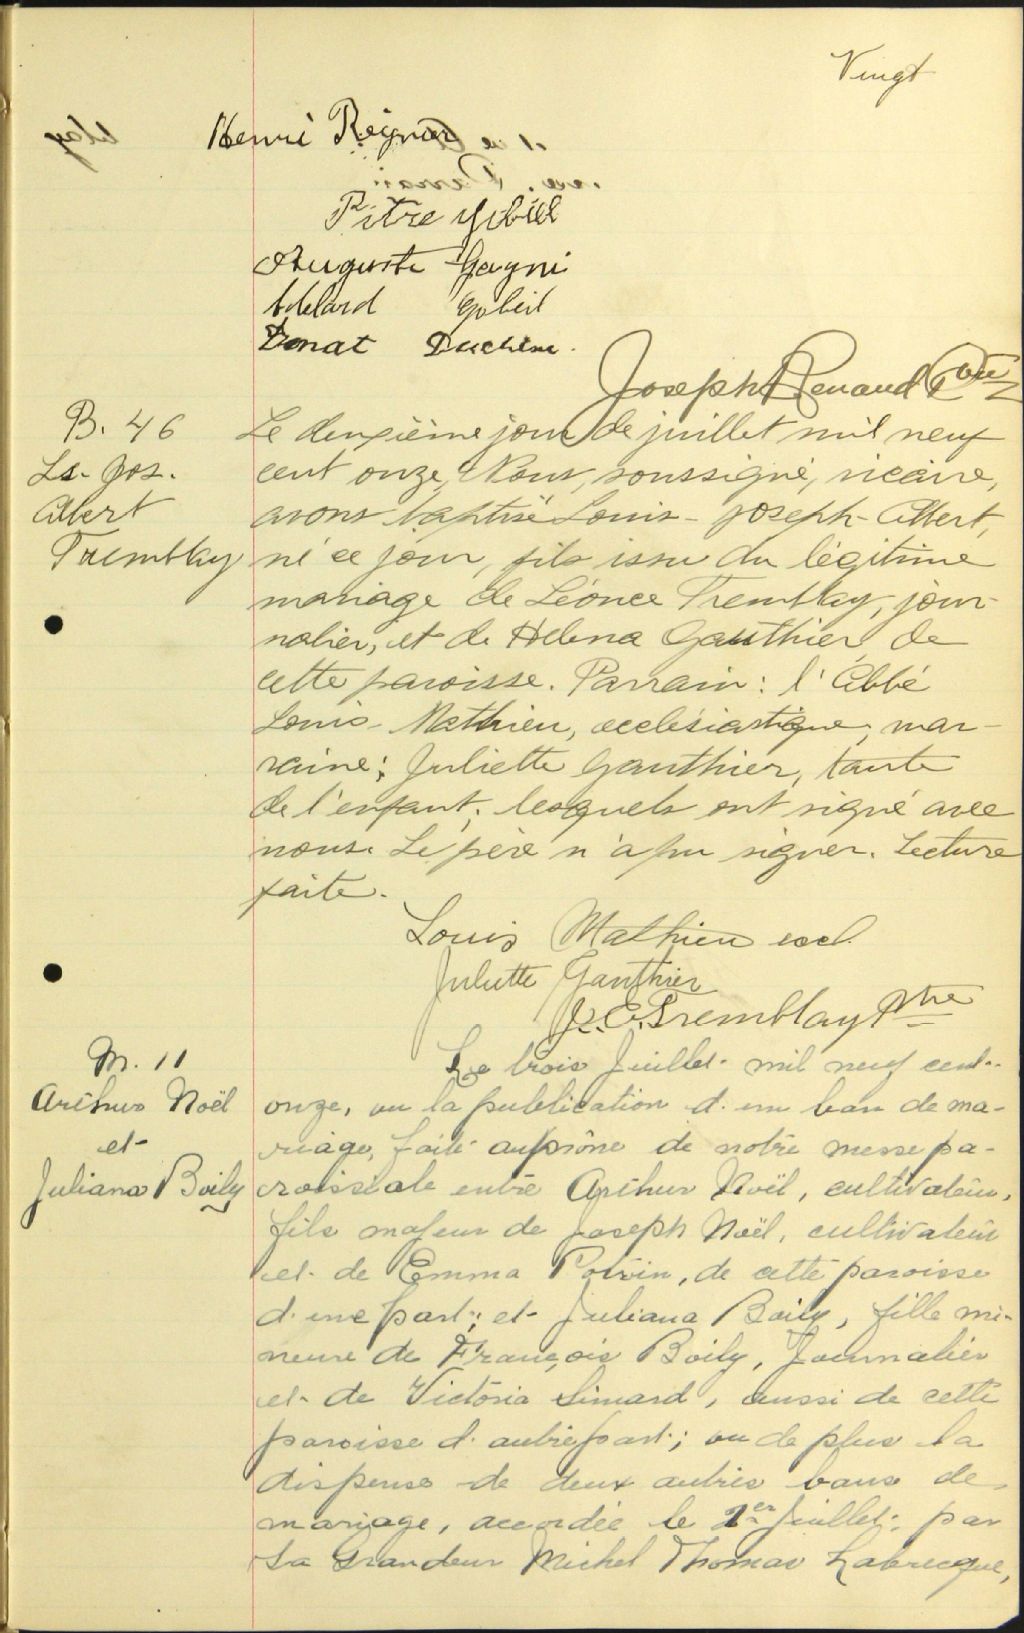 Vingt
Henri Reignier
Pitre Gobeil
Auguste Gagné
Adelard Gobeil
Donat Duchene.
Joseph Renaud Ptre
B. 46
Ls. Jos.
Albert
Tremblay
Le deuxième jour de juillet mil neuf
cent onze, Nous, soussigné, vicaire,
avons baptisé Louis-Joseph-Albert,
né ce jour, fils issu du légitime
mariage de Léonce Tremblay, jour-
nalier, et de Helena Gauthier, de
cette paroisse. Parrain: l'Abbé
Louis Mathieu, ecclésiastique, mar-
raine; Juliette Gauthier, tante
de l'enfant; lesquels ont signé avec
nous. Le père n'a pu signer. Lecture
faite.
Louis Mathieu eccl.
Juliette Gauthier
J. E. Tremblay Ptre
M. 11
Arthur Noël
et
Juliana Boily
Le trois Juillet mil neuf cent
onze, vu la publication d'un ban de ma-
riage, faite au prône de notre messe pa-
roissiale entre Arthur Noël, cultivateur,
fils majeur de Joseph Noël, cultivateur
et de Emma Potvin, de cette paroisse
d'une part; et Juliana Boily, fille mi-
neure de François Boily, Journalier
et de Victoria Simard, aussi de cette
paroisse d'autre part; vu de plus la
dispense de deux autres bans de
mariage, accordée le 1er Juillet, par
Sa Grandeur Michel Thomas Labrecque,